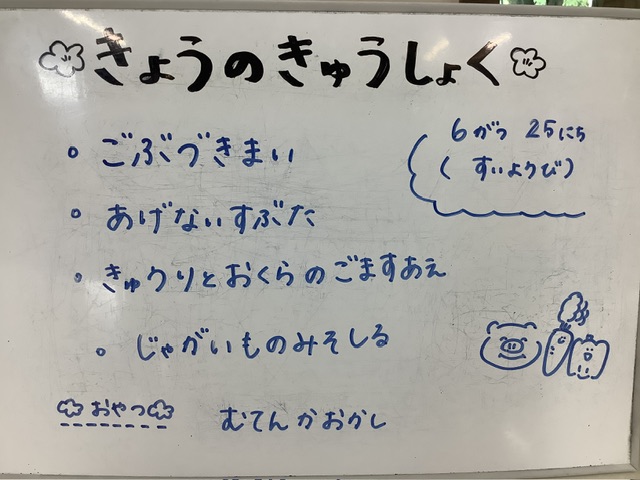 きょうのきゅうしょく
6がつ 25にち
( すいようび)
・ごぶづきまい
・あげないすぶた
・きゅうりとおくらのごますあえ
・じゃがいものみそしる
おやつ むてんかおかし